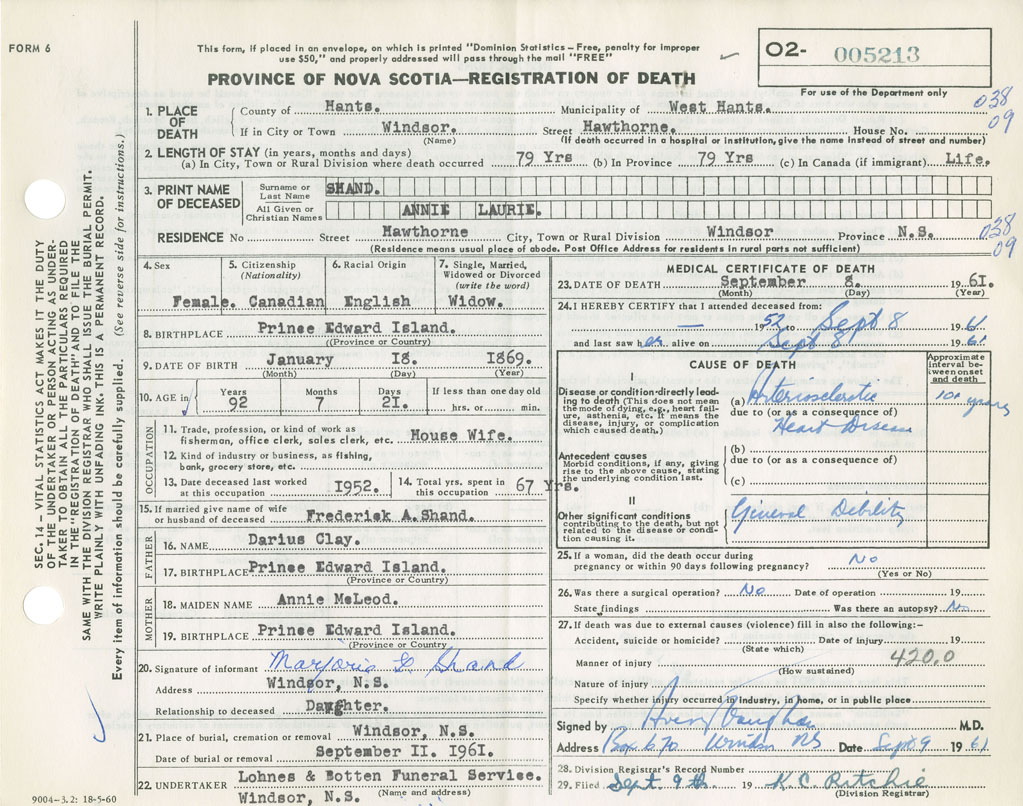 FORM 6
This form, if placed in an envelope, on which is printed "Dominion Statistics – Free, penalty for improper
use $50," and properly addressed will pass through the mail "FREE"
02- 005213
PROVINCE OF NOVA SCOTIA—REGISTRATION OF DEATH
For use of the Department only
038
09
1. PLACE OF DEATH
County of Hants. Municipality of West Hants.
If in City or Town Windsor. Street Hawthorne. House No.
(Name) (If death occurred in a hospital or institution, give the name instead of street and number)
2. LENGTH OF STAY (in years, months and days)
(a) In City, Town or Rural Division where death occurred 79 Yrs (b) In Province 79 Yrs (c) In Canada (if immigrant) Life.
3. PRINT NAME OF DECEASED
Surname or Last Name SHAND.
All Given or Christian Names ANNIE LAURIE.
RESIDENCE No Street Hawthorne City, Town or Rural Division Windsor Province N.S.
038
09
(Residence means usual place of abode. Post Office Address for residents in rural parts not sufficient)
4. Sex
Female.
5. Citizenship
(Nationality)
Canadian
6. Racial Origin
English
7. Single, Married,
Widowed or Divorced
(write the word)
Widow.
8. BIRTHPLACE Prince Edward Island.
((Province or Country)
9. DATE OF BIRTH January 18. 1869.
(Month) (Day) (Year)
10. AGE in Years Months Days If less than one day old
92 7 21. hrs. or min.
OCCUPATION
11. Trade, profession, or kind of work as
fisherman, office clerk, sales clerk, etc. House Wife.
12. Kind of industry or business, as fishing,
bank, grocery store, etc.
13. Date deceased last worked
at this occupation 1952.
14. Total yrs. spent in
this occupation 67 Yrs.
15. If married give name of wife
or husband of deceased Frederick A. Shand.
FATHER
16. NAME Darius Clay.
17. BIRTHPLACE Prince Edward Island.
(Province or Country)
MOTHER
18. MAIDEN NAME Annie McLeod.
19. BIRTHPLACE Prince Edward Island.
(Province or Country
20. Signature of informant Marjorie G Shand
Address Windsor, N.S.
Relationship to deceased Daughter.
21. Place of burial, cremation or removal Windsor, N.S.
Date of burial or removal September 11. 1961.
22. UNDERTAKER Lohnes & Botten Funeral Service.
(Name and address)
Windsor, N.S.
9004–3.2: 18-5-60
MEDICAL CERTIFICATE OF DEATH
23. DATE OF DEATH September 8. 1961.
(Month) (Day) (Year)
24. I HEREBY CERTIFY that I attended deceased from:
— 1952 to Sept 8 1961
and last saw her alive on Sept 8 1961
CAUSE OF DEATH
Approximate
interval be-
tween onset
and death
I
Disease or condition directly lead-
ing to death (This does not mean
the mode of dying, e.g., heart fail-
ure, asthenia, etc. It means the
disease, injury, or complication
which caused death.)
(a) Arteriosclerotic 10+ years
due to (or as a consequence of)
Heart Disease
Antecedent causes
Morbid conditions, if any, giving
rise to the above cause, stating
the underlying condition last.
(b)
due to (or as a consequence of)
(c)
II
Other significant conditions
contributing to the death, but not
related to the disease or condi-
tion causing it.
General Debility
25. If a woman, did the death occur during
pregnancy or within 90 days following pregnancy? No
(Yes or No)
26. Was there a surgical operation? No Date of operation 19
State findings Was there an autopsy? No
27. If death was due to external causes (violence) fill in also the following:–
Accident, suicide or homicide? Date of injury 19
(State which)
420.0
Manner of injury
(How sustained)
Nature of injury
Specify whether injury occurred in industry, in home, or in public place
Signed by Avery Vaughan M.D.
Address Box 670 Windsor NS Date Sept 9 1961
28. Division Registrar's Record Number
29. Filed Sept. 9th 19 K C Ritchie
(Division Registrar)
SEC. 14 – VITAL STATISTICS ACT MAKES IT THE DUTY
OF THE UNDERTAKER OR PERSON ACTING AS UNDER-
TAKER TO OBTAIN ALL THE PARTICULARS REQUIRED
IN THE "REGISTRATION OF DEATH" AND TO FILE THE
SAME WITH THE DIVISION REGISTRAR WHO SHALL ISSUE THE BURIAL PERMIT.
WRITE PLAINLY WITH UNFADING INK. THIS IS A PERMANENT RECORD.
Every item of information should be carefully supplied. (See reverse side for instructions.)